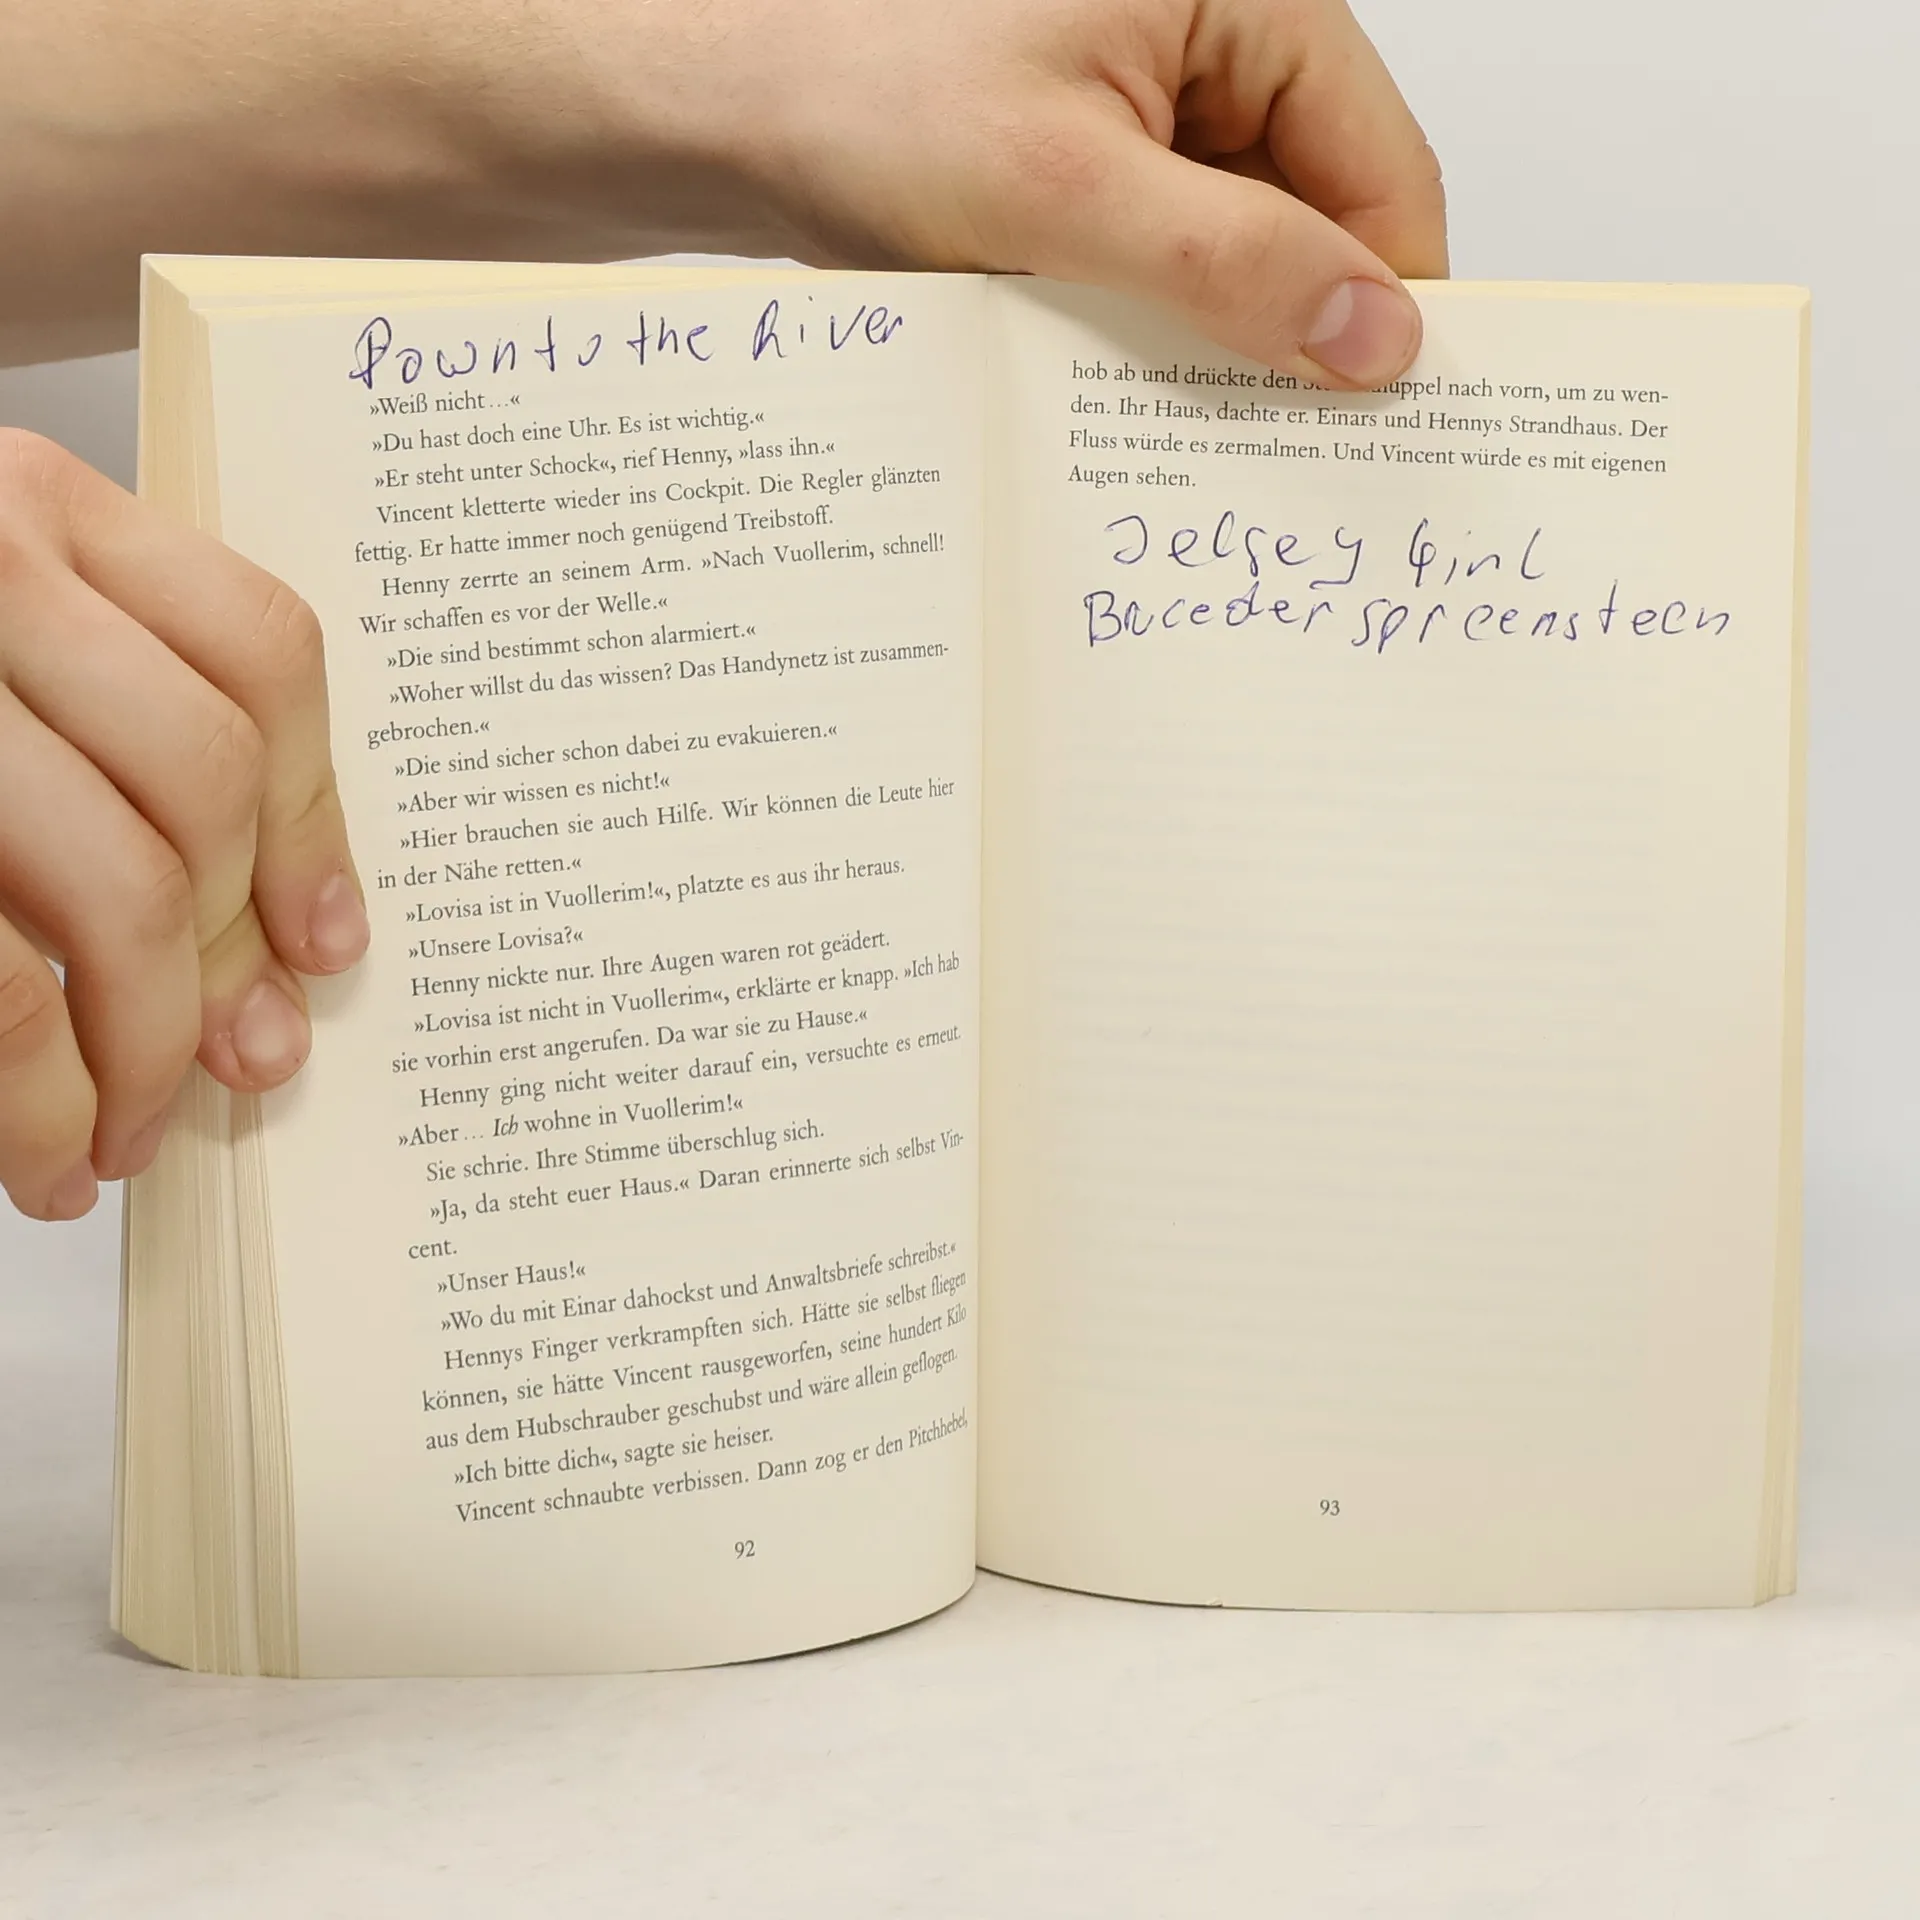 Down to the River
»Weiß nicht…«
»Du hast doch eine Uhr. Es ist wichtig.«
»Er steht unter Schock«, rief Henny, »lass ihn.«
Vincent kletterte wieder ins Cockpit. Die Regler glänzten
fettig. Er hatte immer noch genügend Treibstoff.
Henny zerrte an seinem Arm. »Nach Vuollerim, schnell!
Wir schaffen es vor der Welle.«
»Die sind bestimmt schon alarmiert.«
»Woher willst du das wissen? Das Handynetz ist zusammen-
gebrochen.«
»Die sind sicher schon dabei zu evakuieren.«
»Aber wir wissen es nicht!«
»Hier brauchen sie auch Hilfe. Wir können die Leute hier
in der Nähe retten.«
»Lovisa ist in Vuollerim!«, platzte es aus ihr heraus.
»Unsere Lovisa?«
Henny nickte nur. Ihre Augen waren rot geädert.
»Lovisa ist nicht in Vuollerim«, erklärte er knapp. »Ich hab
sie vorhin erst angerufen. Da war sie zu Hause.«
Henny ging nicht weiter darauf ein, versuchte es erneut.
»Aber… Ich wohne in Vuollerim!«
Sie schrie. Ihre Stimme überschlug sich.
»Ja, da steht euer Haus.« Daran erinnerte sich selbst Vin-
cent.
»Unser Haus!«
»Wo du mit Einar dahockst und Anwaltsbriefe schreibst.«
Hennys Finger verkrampften sich. Hätte sie selbst fliegen
können, sie hätte Vincent rausgeworfen, seine hundert Kilo
aus dem Hubschrauber geschubst und wäre allein geflogen.
»Ich bitte dich«, sagte sie heiser.
Vincent schnaubte verbissen. Dann zog er den Pitchhebel,
92
hob ab und drückte den nach vorn, um zu wen-
den. Ihr Haus, dachte er. Einars und Hennys Strandhaus. Der
Fluss würde es zermalmen. Und Vincent würde es mit eigenen
Augen sehen.
Jelsey Girl
Bruceder spreensteen
93